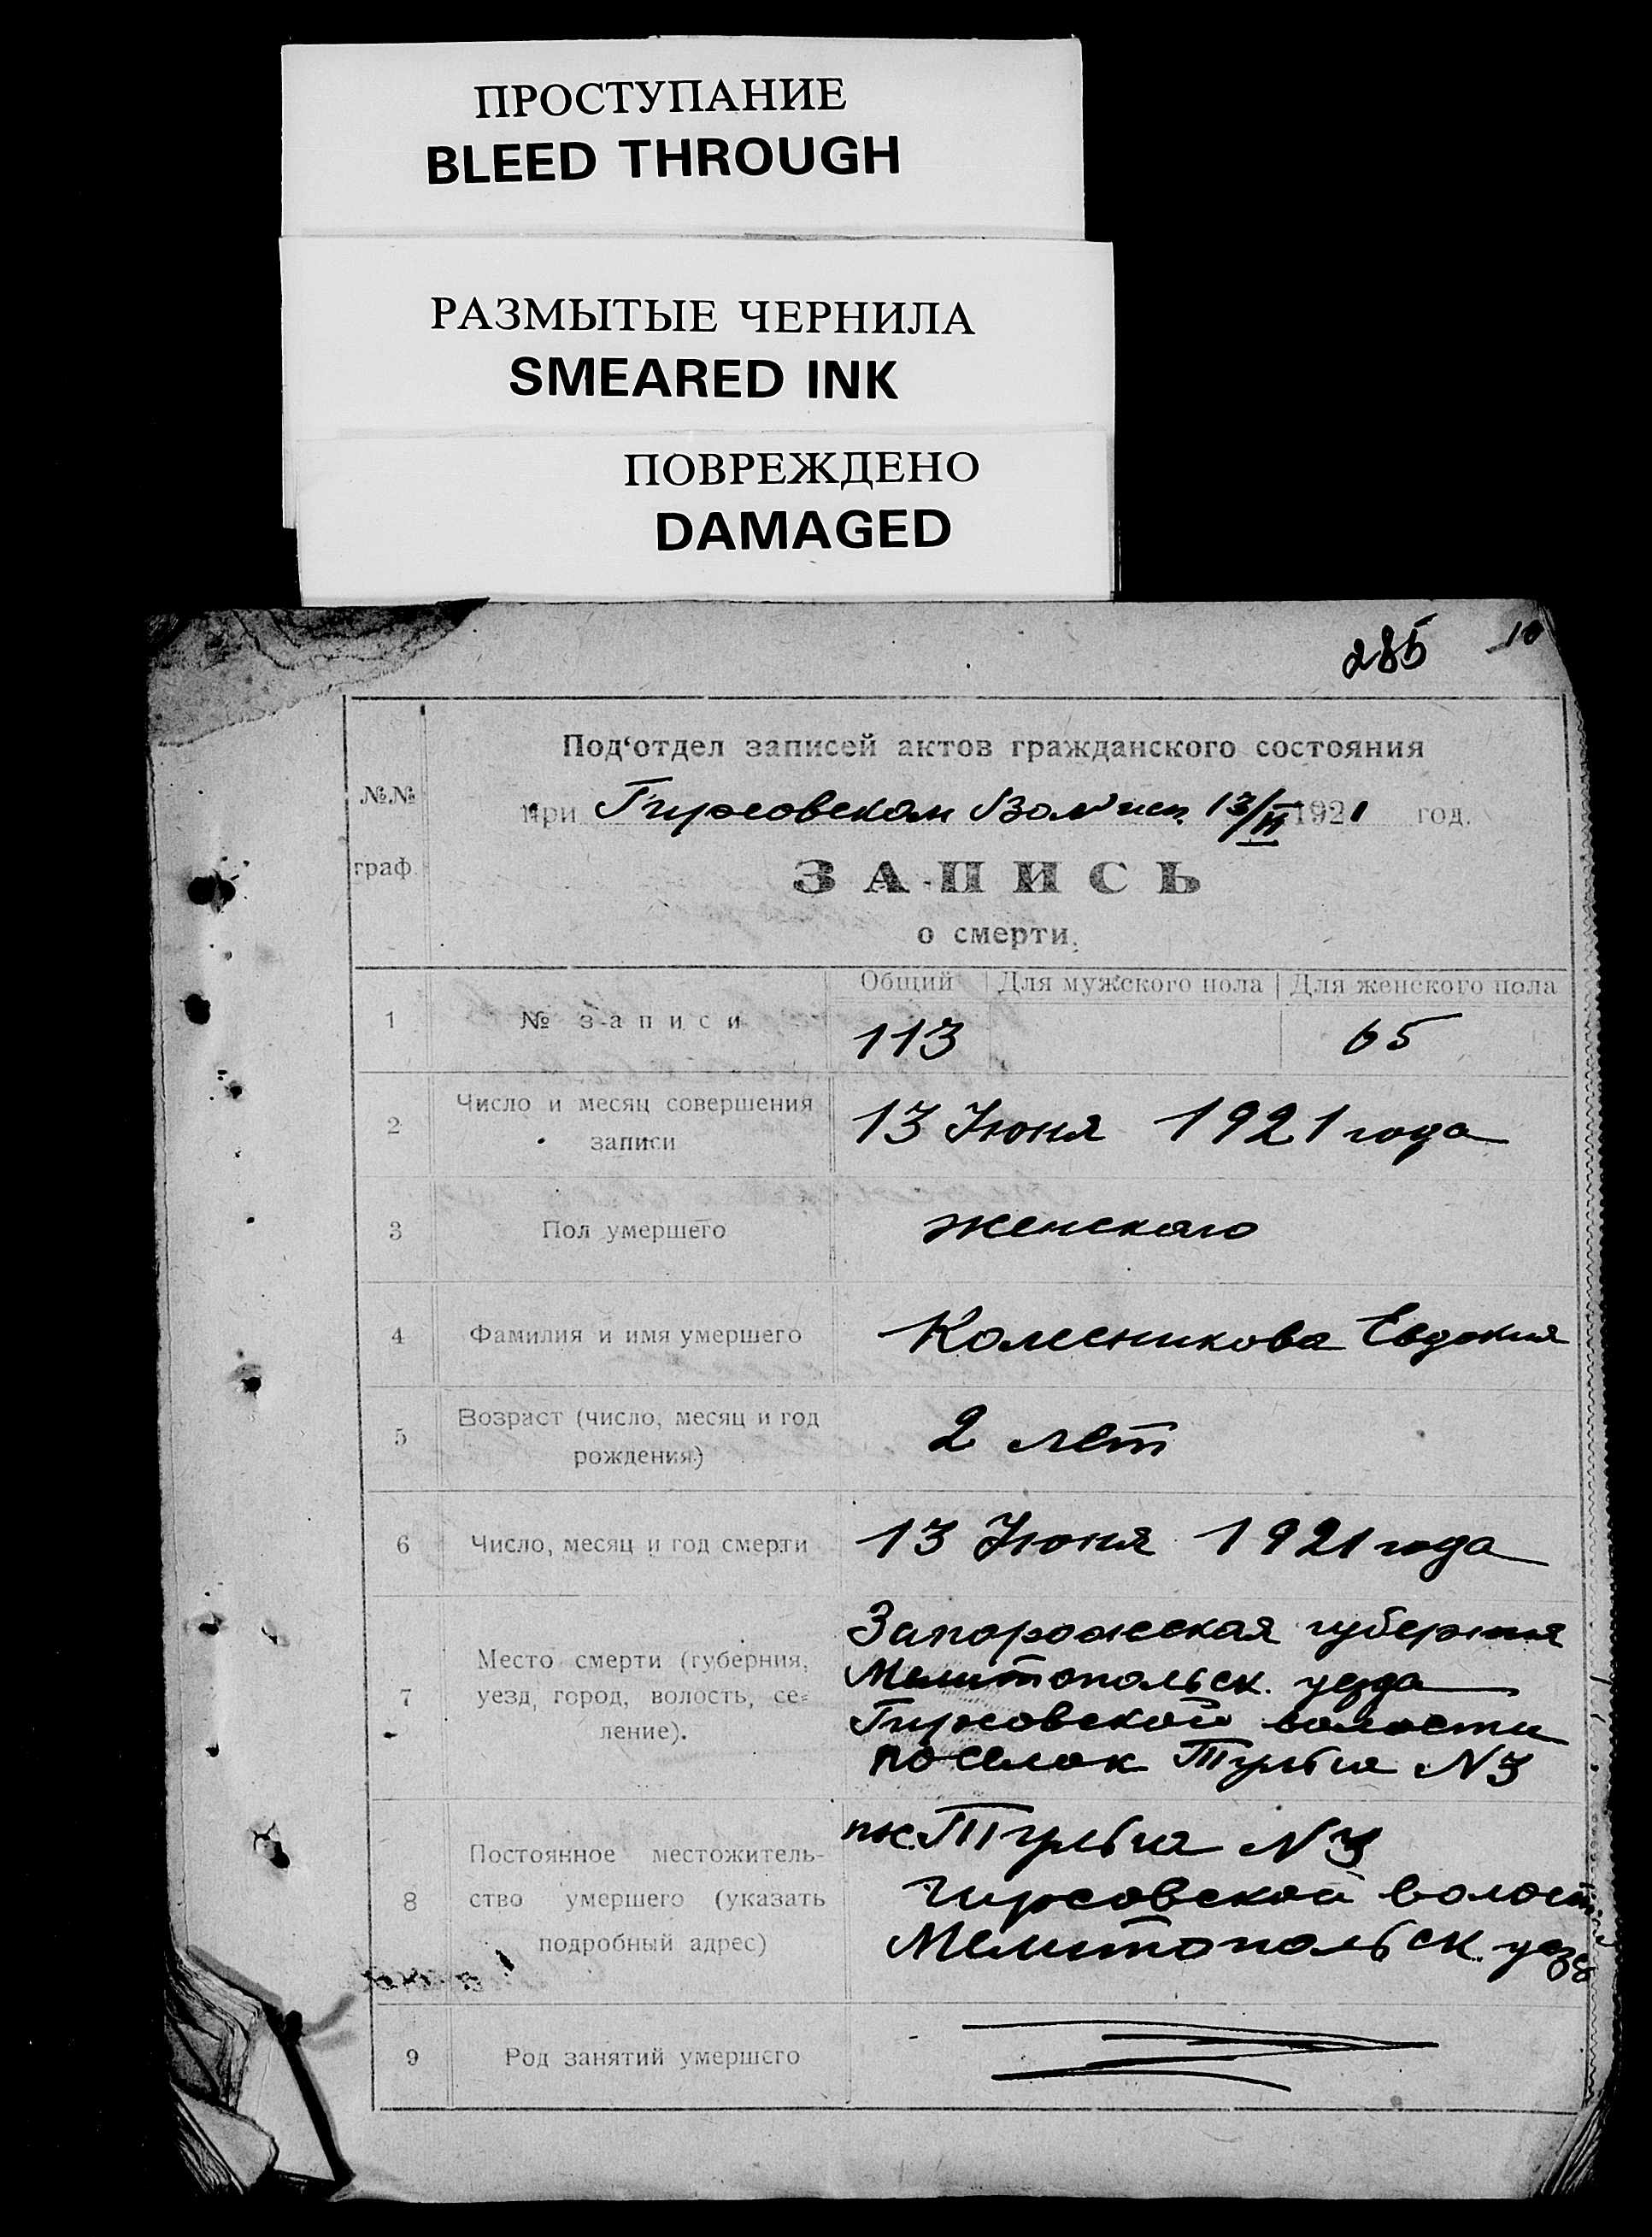 ПРОСТУПАНИЕ
BLEED THROUGH
РАЗМЫТЫЕ ЧЕРНИЛА
SMEARED INK
ПОВРЕЖДЕНО
DAMAGED
285 10
Под‘отдел записей актов гражданского состояния
№№ при Гирсовском Вол исп. 13/VI 1921 год.
граф. ЗАПИСЬ
о смерти.
Общий Для мужского пола Для женского пола
1 № записи 113 65
2 Число и месяц совершения записи 13 Июня 1921 года
3 Пол умершего женскаго
4 Фамилия и имя умершего Колесникова Евдокия
5 Возраст (число, месяц и год рождения) 2 лет
6 Число, месяц и год смерти 13 Июня 1921 года
7 Место смерти (губерния,
уезд, город, волость, се-
ление).
Запорожская губерния
Мелитопольск. уезда
Гирсовской волости
поселок Тульга N3
8 Постоянное местожитель-
ство умершего (указать
подробный адрес)
Тульга N3
Гирсовской волости
Мелитопольск. уезд
9 Род занятий умершего